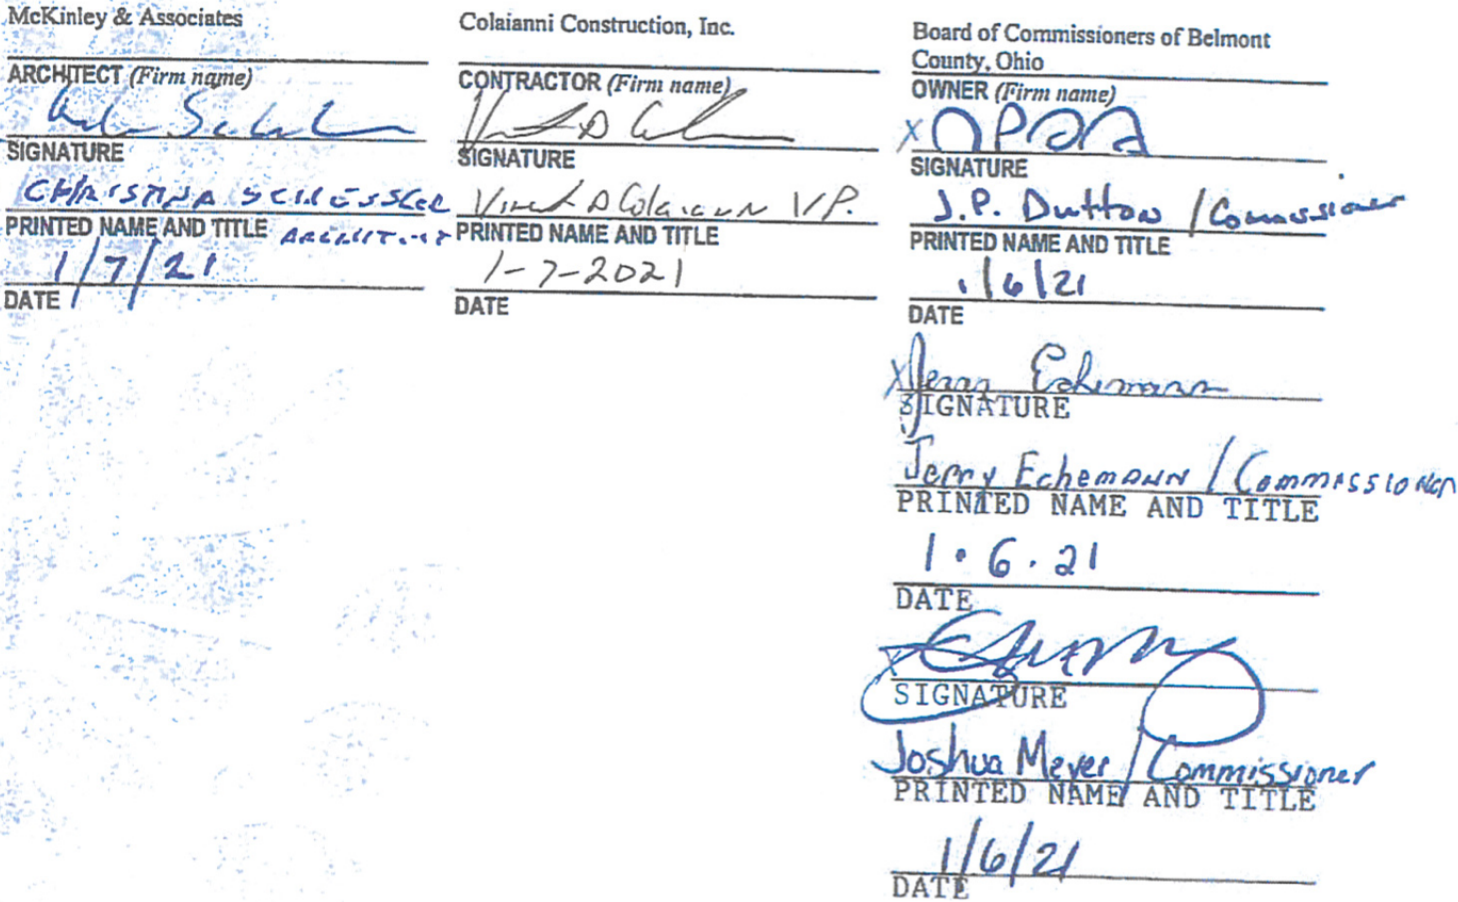 McKinley & Associates
ARCHITECT (Firm name)
SIGNATURE
CHRISTINA SCHESSLER
PRINTED NAME AND TITLE ARCHITECT
1/7/21
DATE
Colaianni Construction, Inc.
CONTRACTOR (Firm name)
SIGNATURE
Vincent D Colaianni V.P.
PRINTED NAME AND TITLE
1-7-2021
DATE
Board of Commissioners of Belmont
County, Ohio
OWNER (Firm name)
X
SIGNATURE
J.P. Dutton / Commissioner
PRINTED NAME AND TITLE
1/6/21
DATE
X Jerry Echemann
SIGNATURE
Jerry Echemann / Commissioner
PRINTED NAME AND TITLE
1.6.21
DATE
X
SIGNATURE
Joshua Meyer / Commissioner
PRINTED NAME AND TITLE
1/6/21
DATE